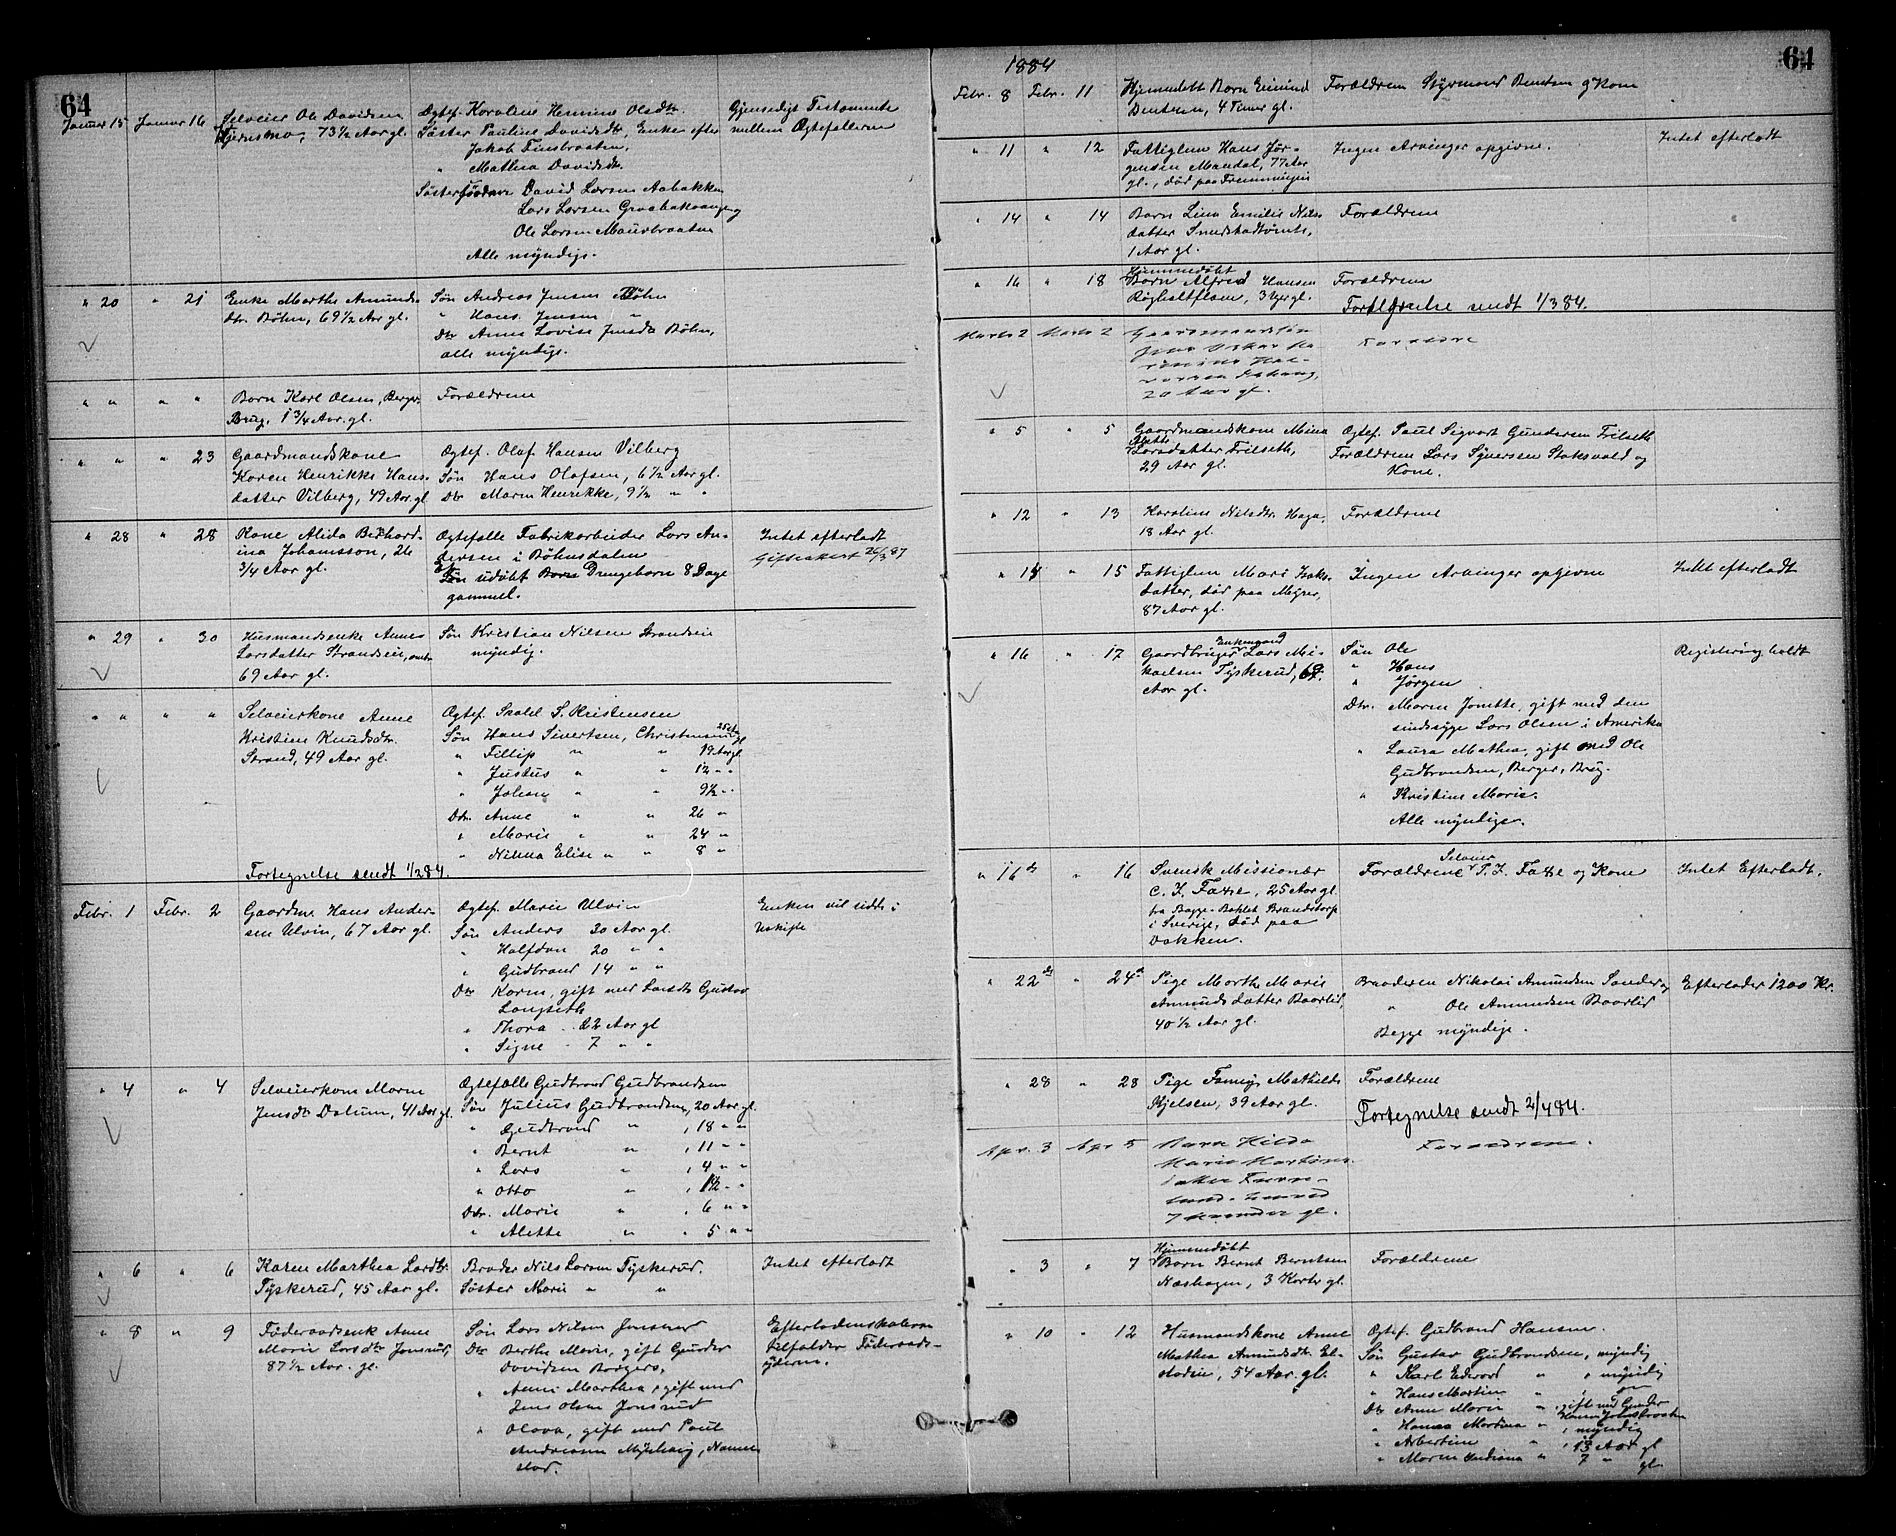 64
Januar 15 Januar 16 Selveier Ole Davidsen
Hjernsmo, 73½ Aar gl.
Ægtef. Karoline Hermine Olsdtr.
Søster Pauline Davidsdtr, Enke efter
Jakob Finsbraaten,
" Mathea Davidsdtr.
Søstersønner David Larsen Aabakken
Lars Larsen
Ole Larsen Maurbraaten
Alle myndige.
Gjensidigt Testamente
mellem Ægtefællerne
" 20 " 21 Enke Marthe Amunds-
dtr. Bøhn, 69½ Aar gl.
Søn Andreas Jensen Bøhn
" Hans Jensen "
Dtr Anne Lovise Jensdtr Bøhn,
alle myndige.
" " " " Barn Karl Olsen, Berger
Brug, 1¾ Aar. gl.
Forældrene
" " " 23 Gaardmandskone
Karen Henrikke Hans-
datter Vilberg, 49 Aar. gl
Ægtef. Olaf Hansen Vilberg
Søn Hans Olafsen, 6½ Aar gl.
Dtr Maren Henrikke, 9½ " "
" 28 " 28 Kone Alida Bernhard-
ina Johansson, 26
3/4 Aar gl.
Ægtefælle Fabrikarbeider Lars An-
dersen i Bøhnsdalen
Et
Søn udøbt Barn Drengebarn 8 Dage
gammel.
Intet efterladt
Gifteakert 26/3 87
" 29 " 30 Husmandsenke Anne
Larsdatter Strandseie, omtr
69 Aar gl.
Søn Kristian Nilsen Strandseie
myndig.
" " " " Selveierkone Anne
Kristine Knudsdtr.
Strand, 49 Aar gl.
Ægtef. S. Kristensen
Søn Hans Sivertsen, Christensen 25 Aar gl
" Fillip " " 19 Aar gl
" Justus " " 12 " "
" Johan " " 9½ " "
Dtr. Anne " " 26 "
" Marie " " 24 "
" Nilma Elise " " 8 "
Fortegnelse sendt 1/2 84.
Febr. 1 Febr. 2 Gaardm. Hans Ander-
sen Ulvin, 67 Aar gl.
Ægtef. Marie Ulvin
Søn Anders 30 Aar gl.
" Halfdan 20 " "
" Gudbrand 14 " "
Dtr Karen, gift med Lensdtr Gustav
Langseth
" Thora - 22 Aar gl
" Signe - 7 " "
Enken vil sidde i
Uskifte
" 4 " 4 Selveierkone Maren
Jensdtr Dalum, 41 Aar gl.
Ægtefælle Gudbrand Gudbrandsen
Søn Julius Gudbrandsen, 20 Aar gl.
" Gudbrand " , 18 " "
" Bernt " , 11 " "
" Lars " , 4 " "
" Otto " , 1½ " "
Dtr. Marie " , 6 " "
" Alette " " 5 " "
" 6 " 6 Karen Marthea Larsdtr
Tyskerud, 45 Aar gl.
Broder Nils Larsen Tyskerud.
Søster Marie " "
Intet efterladt
" 8 " 9 Føderaadsenke Anne
Marie Larsdtr Jonsrud,
87½ Aar. gl.
Søn Lars Nilsen Jonsrud
Dtr Berthe Marie, gift Gunder
Davidsen Borgers,
" Anne Marthea, gift med
Jens Olsen Jonsrud
" Olava, gift med Paul
Andreassen Myrhaug, Nannes-
stad.
Efterladenskaberne
tilfalder Føderaads-
yderne.
1884
64
Febr. 8 Febr. 11 Hjemmedøbt Barn Edmund
Bentsen, 4 Timer gl.
Forældrene Styrmand Bentsen og Kone
" 11 " 12 Fattiglem Hans Jør-
gensen Mandal, 77 Aar
gl., død paa Fremmingen
Ingen Arvinger opgivne.
Intet efterladt
" 14 " 14 Barn Lina Emilie Nils-
datter Smedstadtomte,
1 Aar gl.
Forældrene
" 16 " 18 Hjemmedøbt
Barn Alfred Hansen
Røgholtflaen, 3 Uger gl.
Forældrene
Fortegnelse sendt 1/3 84.
Marts 2 Marts 2 Gaardmandssøn
20 Aar gl.
Forældre
" 5 " 5 Gaardmandskone Mina
Alette
Larsdatter Frilseth,
29 Aar gl.
Ægtef. Paul Sigvart Gundersen Frilseth
Forældrene Lars Syversen Stoksvold og
Kone.
" 12 " 13 Karoline Nilsdtr. Haga,
18 Aar gl.
Forældrene
" 14 " 15 Fattiglem Mari Isaks-
datter, død paa Myrer,
87 Aar gl.
Ingen Arvinger opgivne
Intet efterladt
" 16 " 17 Enkemand
Gaardbruger Lars Mi-
kaelsen Tyskerud, 69
Aar gl.
Søn Ole
" Hans
" Jørgen
Dtr. Maren Jonette, gift med den
sindssyge Lars Olsen i Amerika
" Laura Mathea, gift med Ole
Gudbrandsen, Berger, Brug.
" Kristine Marie.
Alle myndige.
Registrering holdt
" 16de " 16 Svensk Missionær
C. J. Faxe, 25 Aar gl.
fra Bagge-Bohlet Brandstorp
i Sverige, død paa
Dakken.
Selveier
Forældrene P. J. Faxe og Kone
Intet Efterladt.
" 22de " 24de Pige Marthe Marie
Amundsdatter Baarlid,
40½ Aar gl.
Brødrene Nikolai Amundsen Sander og
" Ole Amundsen Baarlid
Begge myndige.
Efterlader 1200 Kr.
" 28 " 28 Pige Fanny Mathilde
Kjelsen, 39 Aar gl.
Forældrene
Fortegnelse sendt 2/4 84.
Apr. 3 Apr 5 Barn Hilda
Marie Martins-
datter
7 Maaneder gl.
Forældrene.
" 3 " 7 Hjemmedøbt
Barn Bernt Berntsen
Næshagen, 3 Kvarter gl.
Forældrene
" 10 " 12 Husmandskone Anne
Mathea Amundsdtr. El-
stadeie, 54 Aar. gl.
Ægtef. Gudbrand Hansen.
Søn Gustav Gudbrandsen, myndig
" Karl Edvard " , myndig
" Hans Martin " ,
Dtr Anne Marie " , gift med Gunder
" Hanna Martina " , myndig
" Albertine " , 13 Aar gl
" Maren Andrana " 7 " gl.